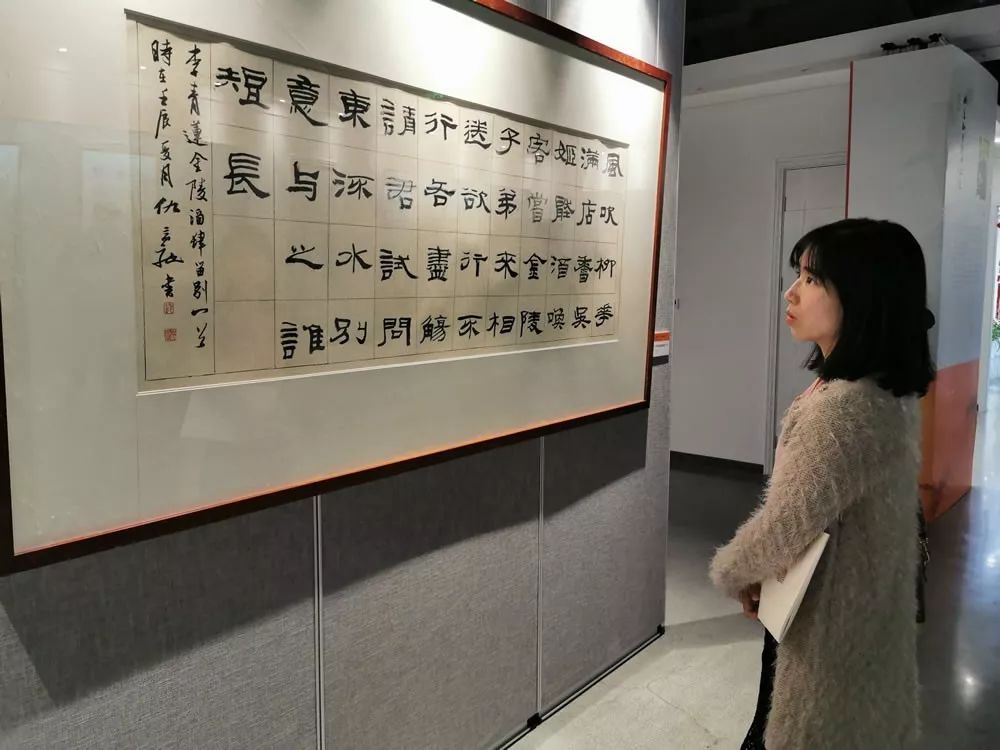 風吹柳華
滿店香吳
姬壓酒喚
客嘗金陵
子弟來相
送欲行不
行各盡觴
請君試問
東流水別
意与之誰
短長
李青蓮金陵酒肆留別一首
時在壬辰夏月書